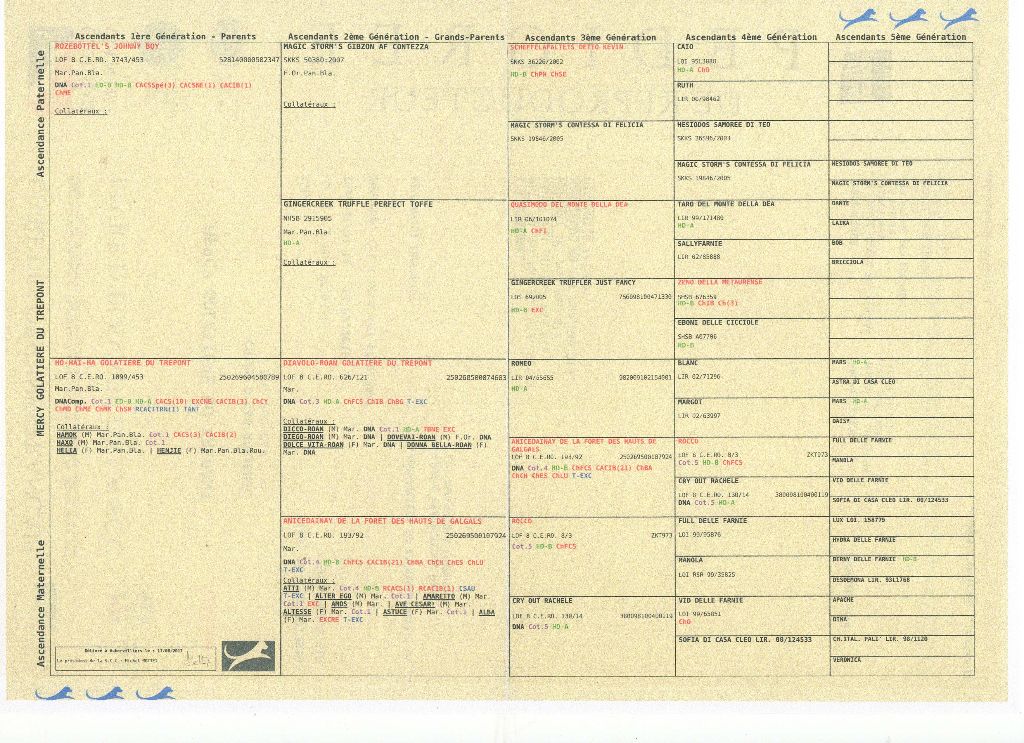 Ascendants 1ère Génération - Parents
Ascendants 2ème Génération - Grands-Parents
Ascendants 3ème Génération
Ascendants 4ème Génération
Ascendants 5ème Génération
Ascendance Paternelle
MERCY GOLATIERE DU TREPONT
Ascendance Maternelle
ROZEBOTTEL'S JOHNNY BOY
LOF 8 C.E.RO. 3743/453 528140000582347
Mar.Pan.Bla.
DNA Cot.1 ED-0 HD-B CACSSpé(3) CACSRE(1) CACIB(1)
ChME
Collatéraux :
HO-HAI-HA GOLATIERE DU TREPONT
LOF 8 C.E.RO. 1899/453 250269604580789
Mar.Pan.Bla.
DNAComp. Cot.1 ED-0 HD-A CACS(10) EXCRE CACIB(3) ChCY
ChMD ChME ChMK ChSR RCACITRN(1) TANT
Collatéraux :
HAMOK (M) Mar.Pan.Bla. Cot.1 CACS(3) CACIB(2)
HAXO (M) Mar.Pan.Bla. Cot.1
HELLA (F) Mar.Pan.Bla. | HENJIE (F) Mar.Pan.Bla.Rou.
Délivré à Aubervilliers le : 17/08/2017
Le président de la S.C.C. : Michel MOTTET
MAGIC STORM'S GIBZON AF CONTEZZA
SKKS 50380/2007
F.Or.Pan.Bla.
Collatéraux :
GINGERCREEK TRUFFLE PERFECT TOFFE
NHSB 2915905
Mar.Pan.Bla.
HD-A
Collatéraux :
DIAVOLO-ROAN GOLATIERE DU TREPONT
LOF 8 C.E.RO. 626/121 250268500874683
Mar.
DNA Cot.3 HD-A ChFCS ChIB ChBG T-EXC
Collatéraux :
DICCO-ROAN (M) Mar. DNA Cot.1 HD-A TBRE EXC
DIEGO-ROAN (M) Mar. DNA | DOVEVAI-ROAN (M) F.Or. DNA
DOLCE VITA-ROAN (F) Mar. DNA | DONNA BELLA-ROAN (F)
Mar. DNA
ANICEDAINAY DE LA FORET DES HAUTS DE GALGALS
LOF 8 C.E.RO. 193/92 250269500107924
Mar.
DNA Cot.4 HD-B ChFCS CACIB(21) ChBA ChCH ChES ChLU
T-EXC
Collatéraux :
ATTI (M) Mar. Cot.4 HD-B RCACS(1) RCACIB(1) CSAU
T-EXC | ALTER EGO (M) Mar. Cot.1 | AMARETTO (M) Mar.
Cot.1 EXC | AMOS (M) Mar. | AVE CESAR! (M) Mar.
ALTESSE (F) Mar. Cot.1 | ASTUCE (F) Mar. Cot.1 | ALBA
(F) Mar. EXCRE T-EXC
SCHEFFELAPALTETS DETTO KEVIN
SKKS 36226/2002
HD-B ChPH ChSE
MAGIC STORM'S CONTESSA DI FELICIA
SKKS 19846/2005
QUASIMODO DEL MONTE DELLA DEA
LIR 06/101074
HD-A ChFI
GINGERCREEK TRUFFLER JUST FANCY
LOS 692005 756098100471330
HD-B EXC
ROMEO
LIR 04/55655 982009102154901
HD-A
ANICEDAINAY DE LA FORET DES HAUTS DE
GALGALS
LOF 8 C.E.RO. 193/92 250269500107924
DNA Cot.4 HD-B ChFCS CACIB(21) ChBA
ChCH ChES ChLU T-EXC
ROCCO
LOF 8 C.E.RO. 8/3 ZKT973
Cot.5 HD-B ChFCS
CRY OUT RACHELE
LOF 8 C.E.RO. 130/14 380098100400119
DNA Cot.5 HD-A
CAIO
LOI 95L3088
HD-A ChO
RUTH
LIR 00/98462
HESIODOS SAMOREE DI TEO
SKKS 36596/2001
MAGIC STORM'S CONTESSA DI FELICIA
SKKS 19846/2005
TARO DEL MONTE DELLA DEA
LIR 99/171480
HD-A
SALLYFARNIE
LIR 02/85888
ZENO DELLA METAURENSE
SHSB 626359
HD-B ChIB Ch(3)
EBONI DELLE CICCIOLE
SHSB A07706
HD-B
BLANC
LIR 02/71296
MARGOT
LIR 02/63997
ROCCO
LOF 8 C.E.RO. 8/3 ZKT973
Cot.5 HD-B ChFCS
CRY OUT RACHELE
LOF 8 C.E.RO. 130/14 380098100400119
DNA Cot.5 HD-A
FULL DELLE FARNIE
LOI 99/95876
MANOLA
LOI RSR 99/35825
VID DELLE FARNIE
LOI 99/65851
ChO
SOFIA DI CASA CLEO LIR. 00/124533
HESIODOS SAMOREE DI TEO
MAGIC STORM'S CONTESSA DI FELICIA
DANTE
LAIKA
BOB
BRICCIOLA
MARS HD-A
ASTRA DI CASA CLEO
MARS HD-A
DAISY
FULL DELLE FARNIE
MANOLA
VID DELLE FARNIE
SOFIA DI CASA CLEO LIR. 00/124533
LUX LOI. 158779
HYDRA DELLE FARNIE
BERNY DELLE FARNIE HD-B
DESDEMONA LIR. 93L1768
APACHE
DINA
CH.ITAL. PALI' LIR. 98/1120
VERONICA